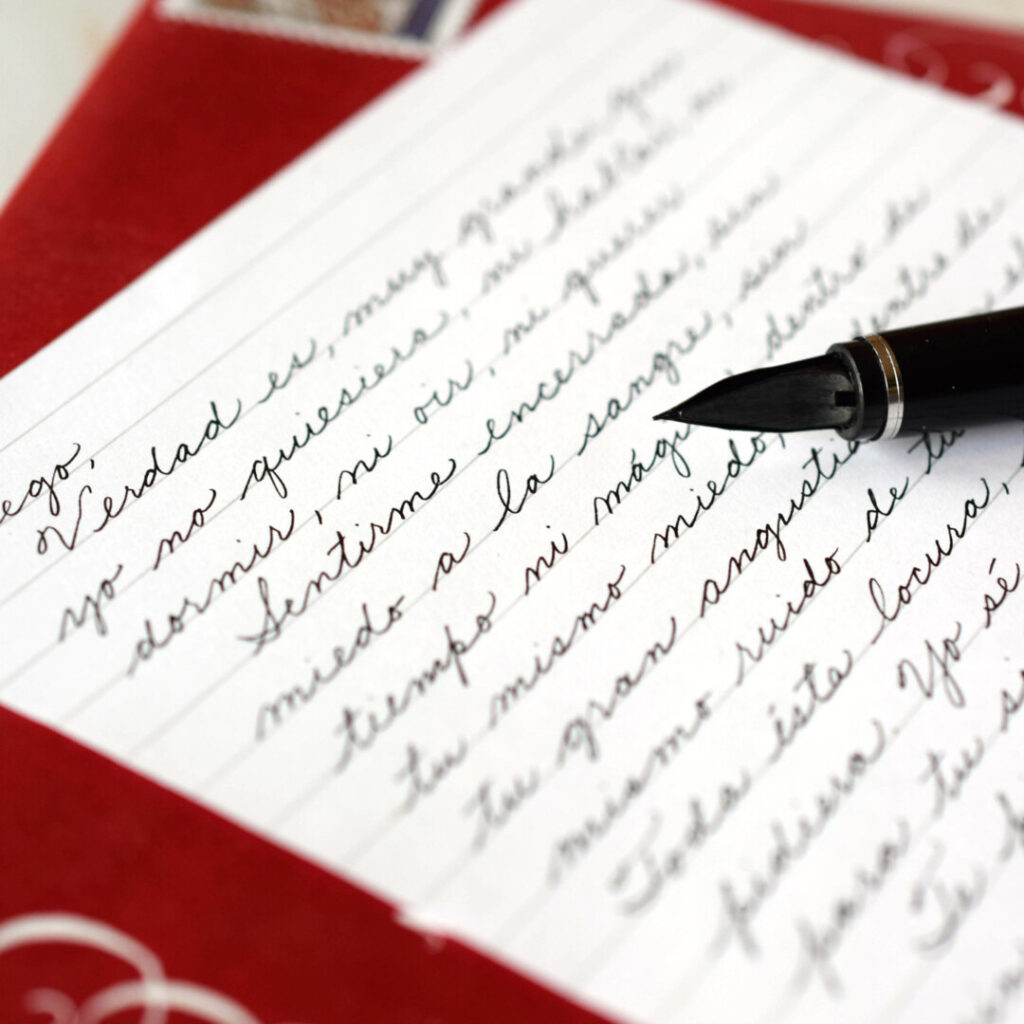 ego,
Verdad es, muy grande que
yo no quiesiera, ni hablar, ni
dormir, ni oir, ni querer
Sentirme encerrada, sin
miedo a la sangre, sin
tiempo ni dentro de
tu mismo miedo, dentro de
tu gran angustia
mismo ruido de tu
Toda ésta locura,
pidiera. Yo sé
para tu
Te